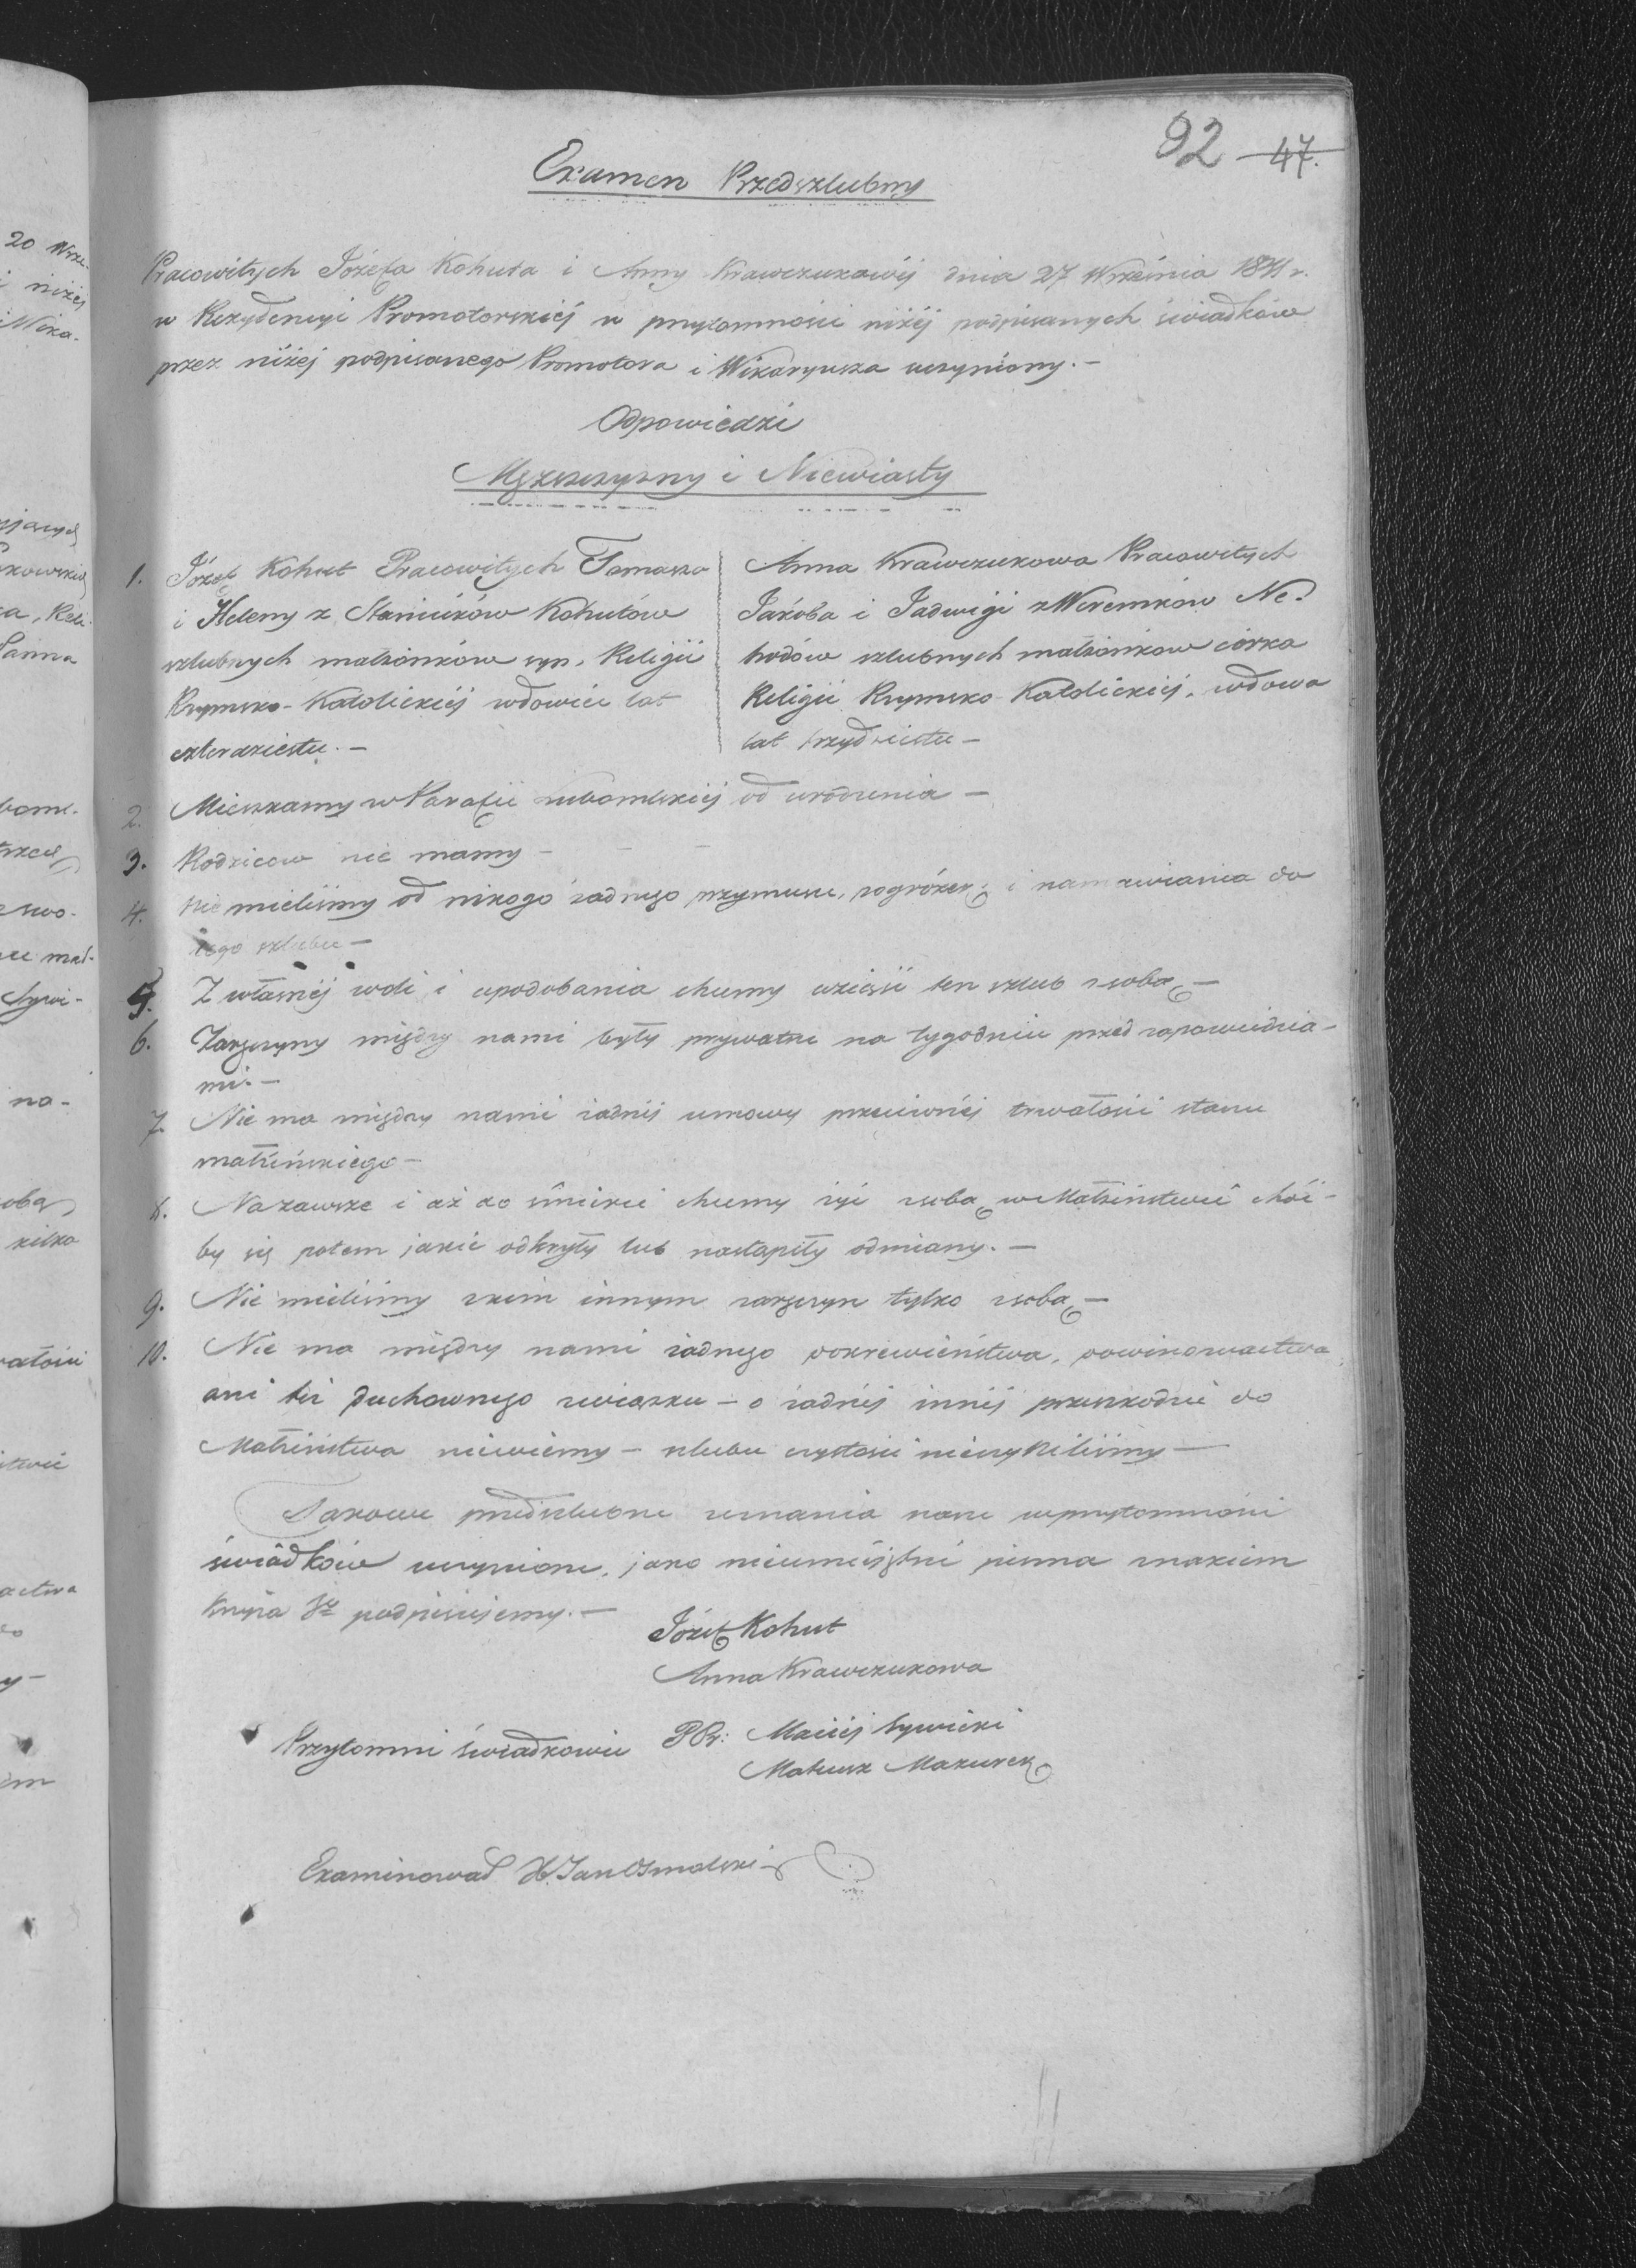 92 47.
Examen Przedszlubny
Pracowitych Józefa Kohuta i Anny Krawczukowéj dnia 27 Września 1841 r.
w Rezydencyi Promotorskiéj w przytomności niżéj podpisanych świadków
przez niżéj podpisanego Promotora i Wikaryusza uczyniony.—
Odpowiedzi
Męzszczyzny i Niewiasty
1. Józef Kohut Pracowitych Tomasza
i Heleny z Kohutów
szlubnych małżonków syn, Religii
Rzymsko-Katolickiéj wdowiec lat
czterdziestu.—
Anna Krawczukowa Pracowitych
Jakóba i Jadwigi z Weremków Ne-
hodów szlubnych małżonków córka
Religii Rzymsko Katolickiéj, wdowa
lat trzydziestu—
2. Mieszkamy w Parafii Lubomlskiéj od urodzenia—
3. Rodziców nie mamy—
4. Nie mieliśmy od nikogo żadnego przymusu, pogróżek i namawiania do
tego szlubu—
5. Z własnéj woli i upodobania chcemy wziąść ten szlub z sobą—
6. Zaręczyny między nami były prywatne na tygodniu przed zapowiedzia-
mi.—
7. Nie ma między nami żadnéj umowy przeciwnéj trwałości stanu
małżeńskiego—
8. Na zawsze i aż do śmierci chcemy żyć z sobą w Małżeństwie choć-
by się potem jakie odkryły lub nastąpiły odmiany.—
9. Nie mieliśmy z kim innym zaręczyn tylko z sobą—
10. Nie ma między nami żadnego pokrewieństwa, powinowactwa
ani też duchownego związku — o żadnéj innéj przeszkodzie do
Małżeństwa niewiemy — szlubu czystości nieczyniliśmy—
Takowe przedszlubne zeznania nasze w przytomności
świadków uczynione, jako nieumiejętni pisma znakiem
krzyża Sgo podpisujemy.—
Józef Kohut
Anna Krawczukowa
Przytomni świadkowie PP: Maciéj Sywicki
Mateusz Mazurek
Examinował X. Jan Osmolski
20 Wrze-
i niżéj